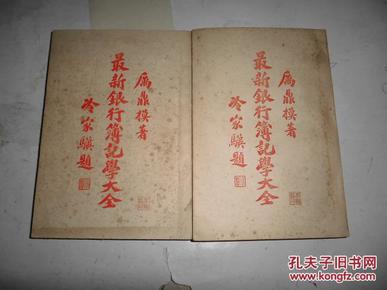 厲鼎模著
最新銀行簿記學大全
冷家驥題
厲鼎模著
最新銀行簿記學大全
冷家驥題
孔夫子旧书网